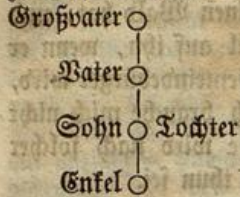 Großvater
Vater
Sohn Tochter
Enkel